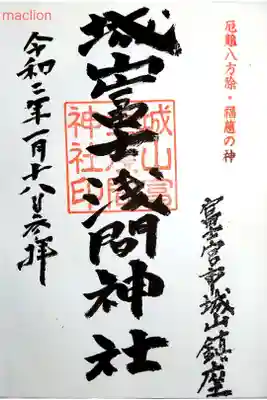 maclion
厄難八方除・福徳の神
富士宮市城山鎮座
城山富士浅間神社
城山富
士浅間
神社印
令和二年一月十八日参拝